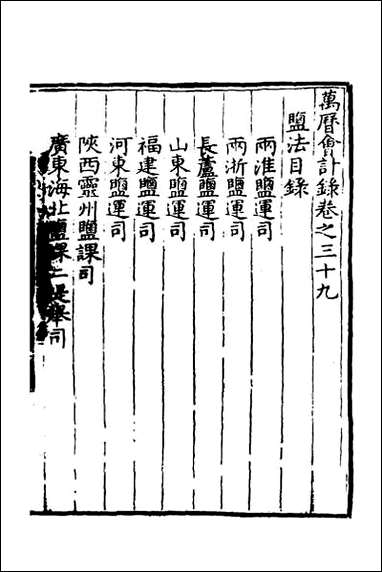 萬曆會計錄卷之三十九
鹽法目錄
兩淮鹽運司
兩浙鹽運司
長蘆鹽運司
山東鹽運司
福建鹽運司
河東鹽運司
陝西靈州鹽課司
廣東海北鹽課二提舉司